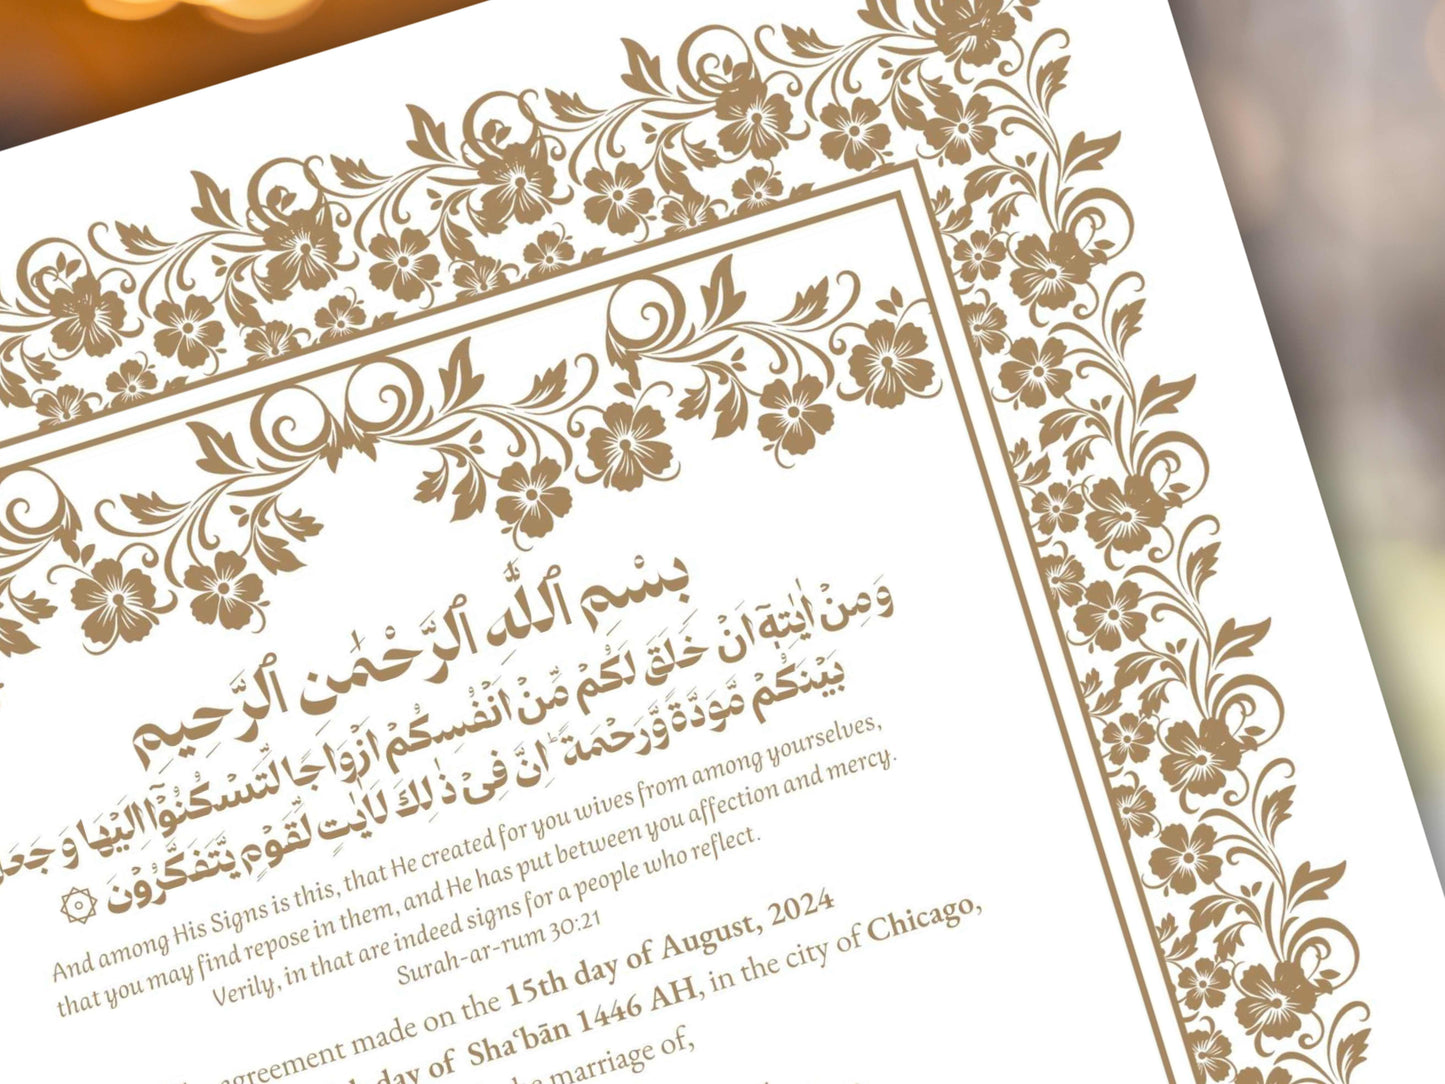 بِسْمِ ٱللَّٰهِ ٱلرَّحْمَٰنِ ٱلرَّحِيمِ
وَمِنْ اٰيٰتِهٖٓ اَنْ خَلَقَ لَكُمْ مِّنْ اَنْفُسِكُمْ اَزْوَاجًا لِّتَسْكُنُوْٓا اِلَيْهَا وَ جَعَلَ
بَيْنَكُمْ مَّوَدَّةً وَّرَحْمَةً ؕ اِنَّ فِىْ ذٰ لِكَ لَاٰيٰتٍ لِّقَوْمٍ يَّتَفَكَّرُوْنَ ۞
And among His Signs is this, that He created for you wives from among yourselves,
that you may find repose in them, and He has put between you affection and mercy.
Verily, in that are indeed signs for a people who reflect.
Surah-ar-rum 30:21
agreement made on the 15th day of August, 2024
day of Sha‘bān 1446 AH, in the city of Chicago,
marriage of,